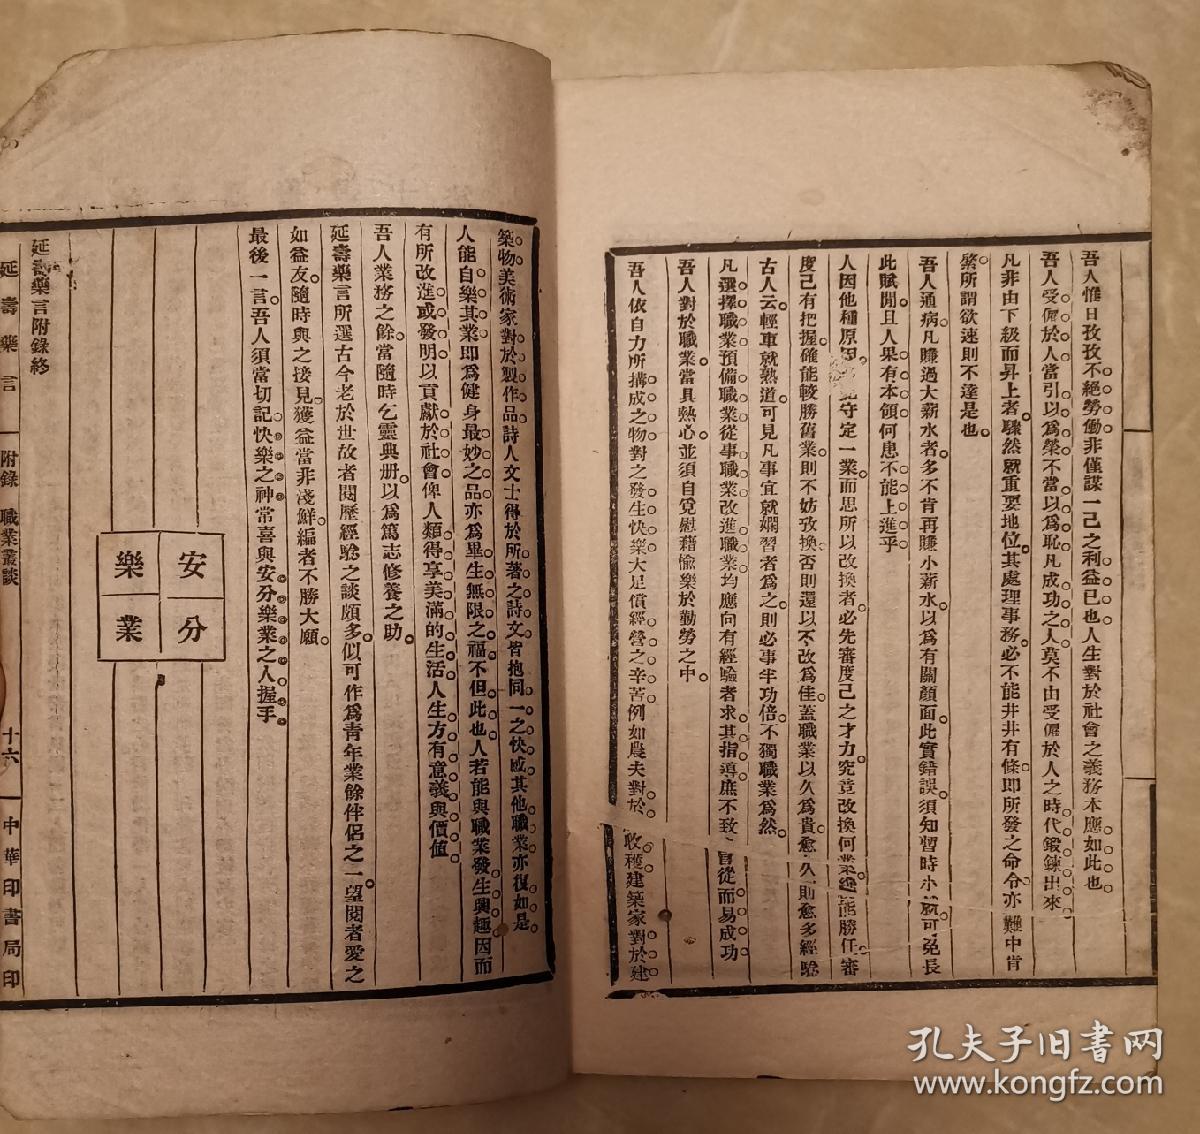 吾人惟日孜孜不絕勞働非僅謀一己之利益已也人生對於社會之義務本應如此也
吾人受傭於人當引以爲榮不當以爲恥凡成功之人莫不由受傭於人之時代鍛鍊出來
凡非由下級而昇上者驟然就重要地位其處理事務必不能井井有條即所發之命令亦難中肯
綮所謂欲速則不達是也
吾人通病凡賺過大薪水者多不肯再賺小薪水以爲有關顏面此實錯誤須知暫時小就可免長
此賦閒且人果有本領何患不能上進乎
人因他種原因守定一業而思所以改換者必先審度己之才力究竟改換何業能勝任審
度己有把握確能較勝舊業則不妨改換否則還以不改爲佳蓋職業以久爲貴愈久則愈多經驗
古人云輕車就熟道可見凡事宜就嫻習者爲之則必事半功倍不獨職業爲然
凡選擇職業預備職業從事職業改進職業均應向有經驗者求其指導庶不致盲從而易成功
吾人對於職業當具熱心並須自覓慰藉愉樂於勤勞之中
吾人依自力所搆成之物對之發生快樂大足償經營之辛苦例如農夫對於收穫建築家對於建
築物美術家對於製作品詩人文士得於所著之詩文皆抱同一之快感其他職業亦復如是
人能自樂其業即爲健身最妙之品亦爲畢生無限之福不但此也人若能與職業發生興趣因而
有所改進或發明以貢獻於社會俾人類得享美滿的生活人生方有意義與價值
吾人業務之餘當隨時乞靈典册以爲篤志修養之助
延壽藥言所選古今老於世故者閱歷經驗之談頗多似可作爲青年業餘伴侶之一望閱者愛之
如益友隨時與之接見獲益當非淺鮮編者不勝大願
最後一言吾人須當切記快樂之神常喜與安分樂業之人握手
安分
樂業
延壽藥言附錄終
延壽藥言 附錄 職業叢談 十六 中華印書局印
孔夫子旧书网
www.kongfz.com